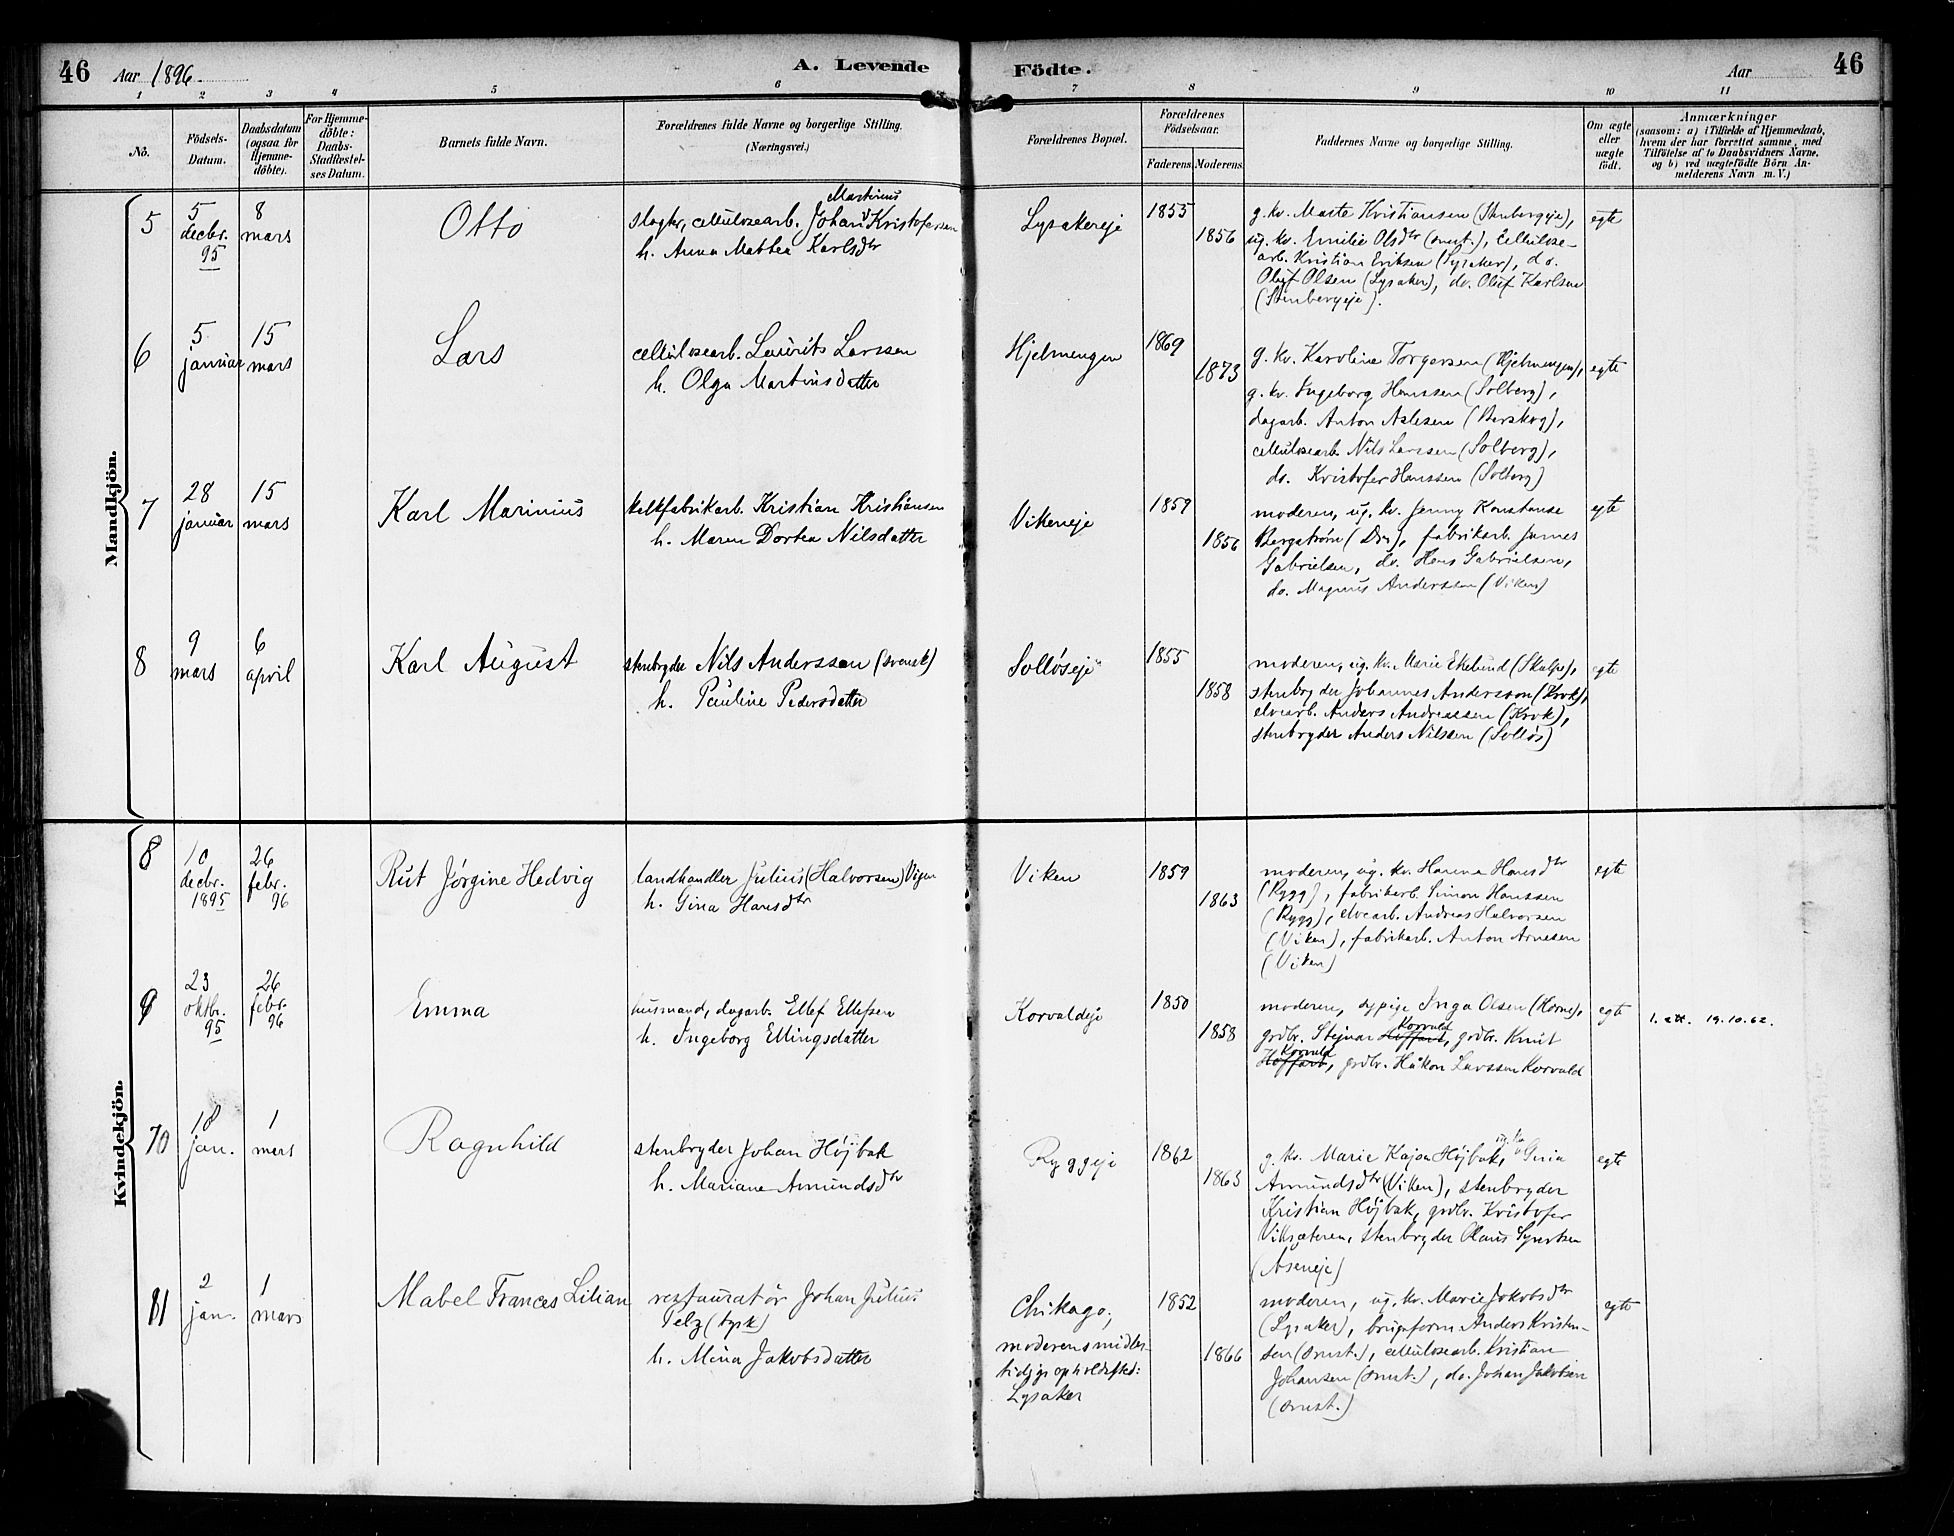 46 Aar 1896. A. Levende Födte. Aar 46
1 2 3 4 5 6 7 8 9 10 11
No.
Födsels-Datum.
Daabsdatum (ogsaa for Hjemme-döbte).
For Hjemme-döbte: Daabs-Stadfæstel-ses Datum.
Barnets fulde Navn.
Forældrenes fulde Navne og borgerlige Stilling.
(Næringsvei.)
Forældrenes Bopæl.
Forældrenes Födselsaar.
Faderens. Moderens.
Faddernes Navne og borgerlige Stilling.
Om ægte eller uægte födt.
Anmærkninger
(saasom: a) i Tilfælde af Hjemmedaab,
hvem der har forrettet samme, med
Tilföielse af to Daabsvidners Navne,
og b) ved uægtefödte Börn An-
melderens Navn m. V.)
Mandkjön.
5
5 decbr. 95
8 mars
Otto
Martinius
slagter, cellulosearb. Johan Kristofersen
h. Anna Mathea Karlsdtr
Lysakereje
1855
1856
g. kv. Marte Kristiansen (Stenbergeje),
ug. kv. Emilie Olsdtr (smst.), cellulose-
arb. Kristian Eriksen (Lysaker), do.
Oluf Olsen (Lysaker), do. Oluf Karlsen
(Stenbergeje).
egte
6
5 januar
15 mars
Lars
cellulosearb. Laurits Larssen
h. Olga Martinsdatter
Hjelmengen
1869
1873
g. kv. Karoline Torgersen (Hjelmengen),
g. kv. Ingeborg Hanssen (Solberg),
dagarb. Anton Aslesen (Berskog),
cellulosearb. Nils Larssen (Solberg),
do. Kristofer Hanssen (Solberg)
egte
7
28 januar
15 mars
Karl Marinius
Kristian Kristiansen
h. Maren Dortea Nilsdatter
Vikeneje
1859
1856
moderen, ug. kv. Jenny Konstanse
Bergstrøm (Drn), fabrikarb. James
Gabrielsen, do. Hans Gabrielsen,
do. Magnus Anderssen (Viken)
egte
8
9 mars
6 april
Karl August
stenbryder Nils Anderssen (svensk)
h. Pauline Pedersdatter
Solløseje
1855
1858
moderen, ug. kv. Marie Ekelund (Skalpe),
stenbryder Johannes Andersson (Krok),
elvearb. Anders Andreassen (Krok),
stenbryder Anders Nilssen (Solløs)
egte
Kvindekjön.
8
10 decbr. 1895
26 febr. 96
Rut Jørgine Hedvig
landhandler Julius (Halvorsen) Vigen
h. Gina Hansdtr
Viken
1859
1863
moderen, ug. kv. Hanna Hansdtr
(Rygg), fabrikarb. Simon Hanssen
(Rygg), elvearb. Andreas Halvorsen
(Viken), fabrikarb. Anton Arnesen
(Viken)
egte
9
23 oktbr. 95
26 febr. 96
Emma
husmand, dagarb. Ellef Ellefsen
h. Ingeborg Ellingsdatter
Korvaldeje
1850
1858
moderen, sypige Inga Olsen (Horne),
grdbr. Steinar Korvald, grdbr. Knut
Korvald, grdbr. Håkon Larssen Korvald
egte
1. att. 19.10.62.
10
18 jan.
1 mars
Ragnhild
stenbryder Johan Højbak
h. Mariane Amundsdtr
Ryggeje
1862
1863
g. kv. Marie Kajsa Højbak, ug. kv. Guria
Amundsdtr (Viken), stenbryder
Kristian Højbak, grdbr. Kristofer
Viksæteren, stenbryder Olaus Syvertsen
(Aseneje)
egte
11
2 jan.
1 mars
Mabel Frances Lilian
restauratør Johan Julius
Pelz (tysk)
h. Mina Jakobsdatter
Chikago,
moderens midler-
tidige opholdssted:
Lysaker
1852
1866
moderen, ug. kv. Marie Jakobsdtr
(Lysaker), brugsform. Anders Kristen-
sen (smst.), cellulosearb. Kristian
Johansen (smst.), do. Johan Jakobsen
(smst.)
egte